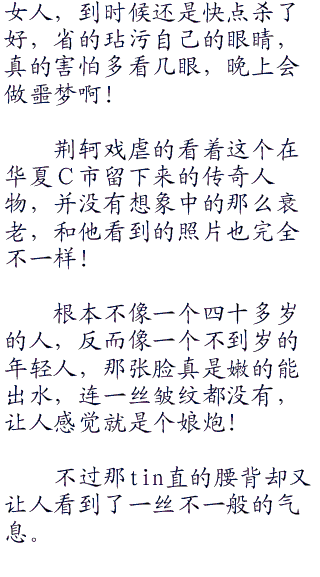 女人，到时候还是快点杀了
好，省的玷污自己的眼睛，
真的害怕多看几眼，晚上会
做噩梦啊！
荆轲戏虐的看着这个在
华夏Ｃ市留下来的传奇人
物，并没有想象中的那么衰
老，和他看到的照片也完全
不一样！
根本不像一个四十多岁
的人，反而像一个不到岁的
年轻人，那张脸真是嫩的能
出水，连一丝皱纹都没有，
让人感觉就是个娘炮！
不过那tin直的腰背却又
让人看到了一丝不一般的气
息。